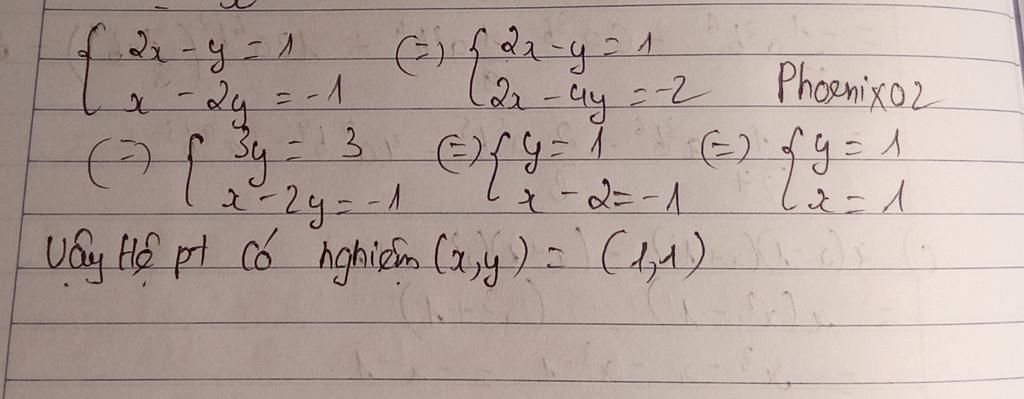 { 2x - y = 1 (=) { 2x - y = 1
x - 2y = -1 2x - 4y = -2 Phoenix02
(=) { 3y = 3 (=) { y = 1 (=) { y = 1
x - 2y = -1 x - 2 = -1 x = 1
Vậy Hệ pt có nghiệm (x,y) = (1,1)